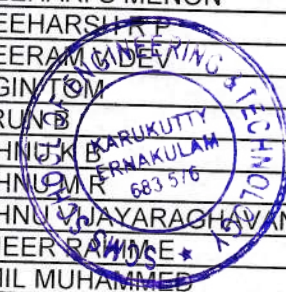 MENON
EEHARSH R P
EERAM G DEV
GIN TOM
RUN B
HNU K B
HNU M R
HNU VIJAYARAGHAVAN
DEER RAHIM E
HIL MUHAMMED
SCMS SCHOOL OF ENGINEERING & TECHNOLOGY
KARUKUTTY
ERNAKULAM
683 576